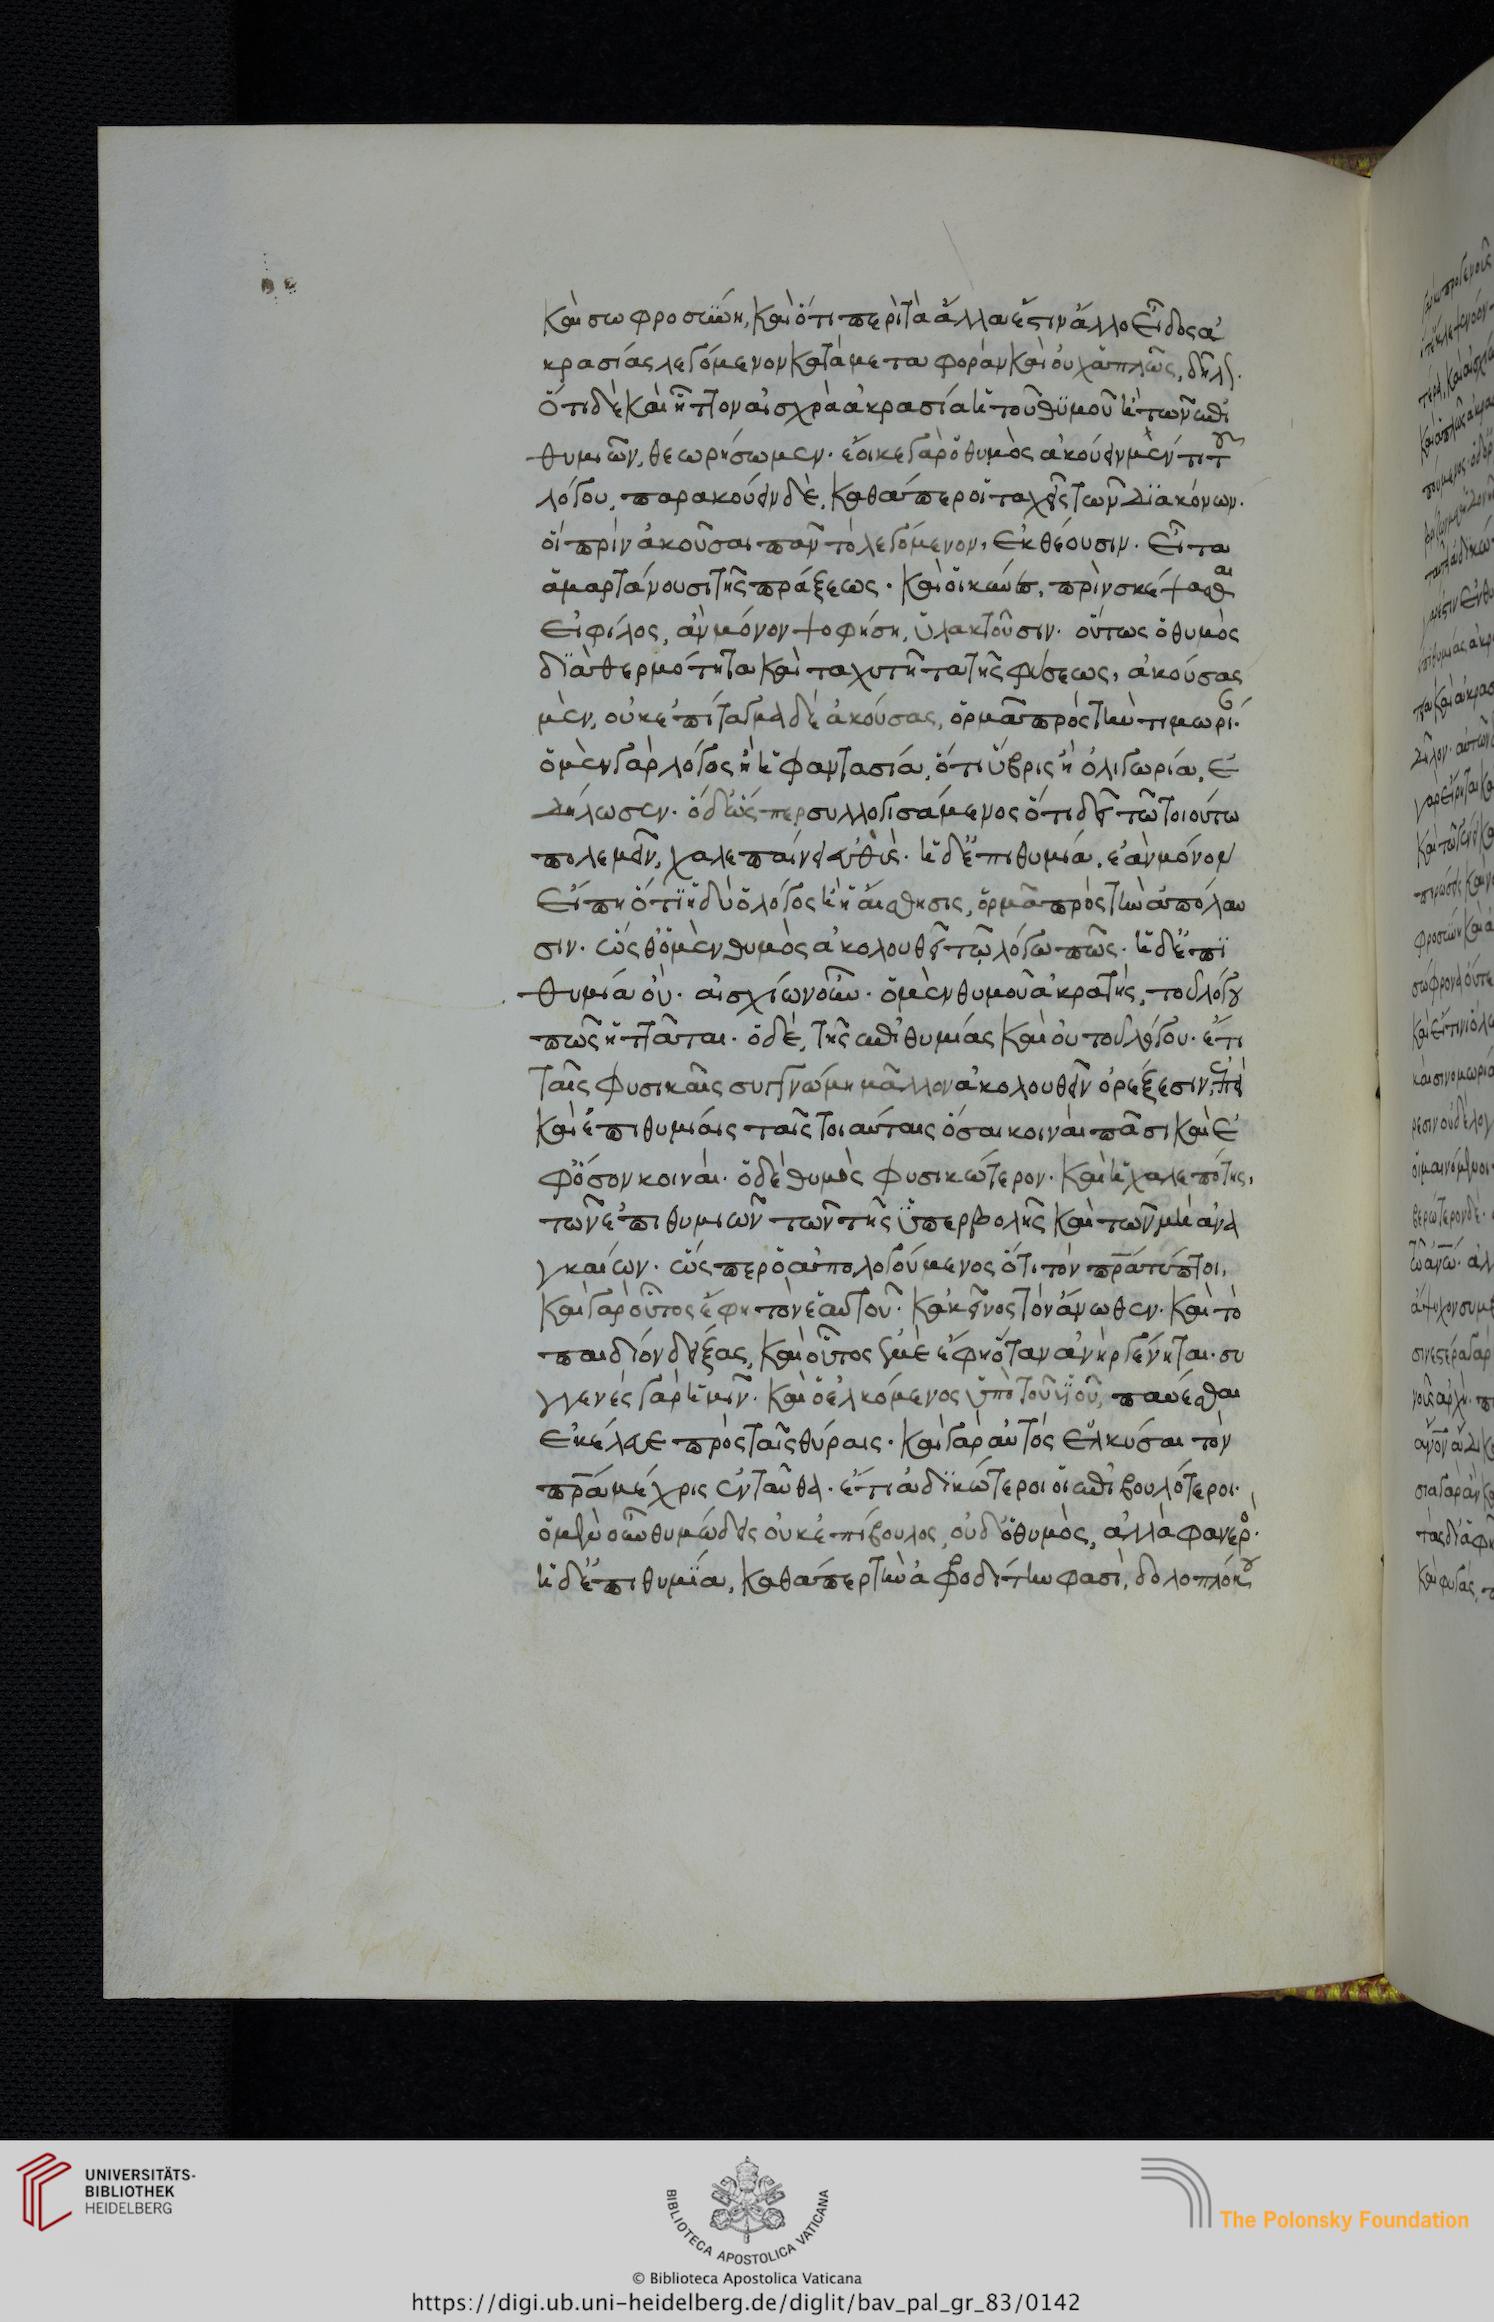 καὶ σωφροσύνη, καὶ ὅτι περὶ τὰ ἄλλα ἐστὶν ἄλλο εἶδος ἀ
κρασίας λεγόμενον κατὰ μεταφορὰν καὶ οὐχ ἁπλῶς, δῆλον.
ὅτι δὲ καὶ ἧττον αἰσχρὰ ἀκρασία ἡ τοῦ θυμοῦ ἢ τῶν ἐπι
θυμιῶν, θεωρήσωμεν. ἔοικε γὰρ ὁ θυμὸς ἀκούειν μέν τι τοῦ
λόγου, παρακούειν δὲ, καθάπερ οἱ ταχεῖς τῶν διακόνων.
οἳ πρὶν ἀκοῦσαι πᾶν τὸ λεγόμενον, ἐκθέουσιν. εἶτα
ἁμαρτάνουσι τῆς πράξεως. καὶ οἱ κύνες, πρὶν σκέψασθαι
εἰ φίλος, ἂν μόνον ψοφήση, ὑλακτοῦσιν. οὕτως ὁ θυμὸς
διὰ θερμότητα καὶ ταχυτῆτα τῆς φύσεως, ἀκούσας
μὲν, οὐκ ἐπίταγμα δὲ ἀκούσας, ὁρμᾶ πρὸς τὴν τιμωρί.
ὁ μὲν γὰρ λόγος ἢ ἡ φαντασία, ὅτι ὕβρις ἢ ὀλιγωρία, ἐ
δήλωσεν. ὁ δ' ὥσπερ συλλογισάμενος ὅτι δεῖ τῶ τοιούτω
πολεμεῖν, χαλεπαίνει εὐθὺς. ἡ δ' ἐπιθυμία, ἐὰν μόνον
εἴπη ὅτι ἡδὺ ὁ λόγος ἢ ἡ αἴσθησις, ὁρμᾶ πρὸς τὴν ἀπόλαυ
σιν. ὥσθ' ὁ μὲν θυμὸς ἀκολουθεῖ τῶ λόγω πῶς. ἡ δ' ἐπι
θυμία οὐ. αἰσχίων οὖν. ὁ μὲν θυμοῦ ἀκρατὴς, τοῦ λόγου
πῶς ἡττᾶται. ὁ δὲ, τῆς ἐπιθυμίας καὶ οὐ τοῦ λόγου. ἔτι
ταῖς φυσικαῖς συγγνώμη μᾶλλον ἀκολουθεῖν ὀρέξεσιν, ἐπεὶ
καὶ ἐπιθυμίαις ταῖς τοιαύταις ὅσαι κοιναὶ πᾶσι καὶ ἐ
φ' ὅσον κοιναί. ὁ δὲ θυμὸς φυσικώτερον. καὶ ἡ χαλεπότης,
τῶν ἐπιθυμιῶν τῶν τῆς ὑπερβολῆς καὶ τῶν μὴ ἀνα
γκαίων. ὥσπερ ὁ ἀπολογούμενος ὅτι τὸν πρα τύπτοι,
καὶ γὰρ οὗτος ἔφη τὸν ἑαυτοῦ. κἀκεῖνος τὸν ἄνωθεν. καὶ τὸ
παιδίον δείξας, καὶ οὗτος ἐμὲ ἔφη ὅταν ἀνὴρ γένηται. συ
γγενὲς γὰρ ἡμῖν. καὶ ὁ ἑλκόμενος ὑπὸ τοῦ υἱοῦ, παύεσθαι
ἐκέλευε πρὸς ταῖς θύραις. καὶ γὰρ αὐτὸς ἑλκύσαι τὸν
πρα μέχρις ἐνταῦθα. ἔτι ἀδικώτεροι οἱ ἐπιβουλότεροι.
ὁ μὲν οὖν θυμώδης οὐκ ἐπίβουλος, οὐδ' ὁ θυμὸς, ἀλλὰ φανερός.
ἡ δ' ἐπιθυμία, καθάπερ τὴν ἀφροδίτην φασὶ, δολοπλόκου
UNIVERSITÄTS-
BIBLIOTHEK
HEIDELBERG
BIBLIOTECA APOSTOLICA VATICANA
The Polonsky Foundation
© Biblioteca Apostolica Vaticana
https://digi.ub.uni-heidelberg.de/diglit/bav_pal_gr_83/0142